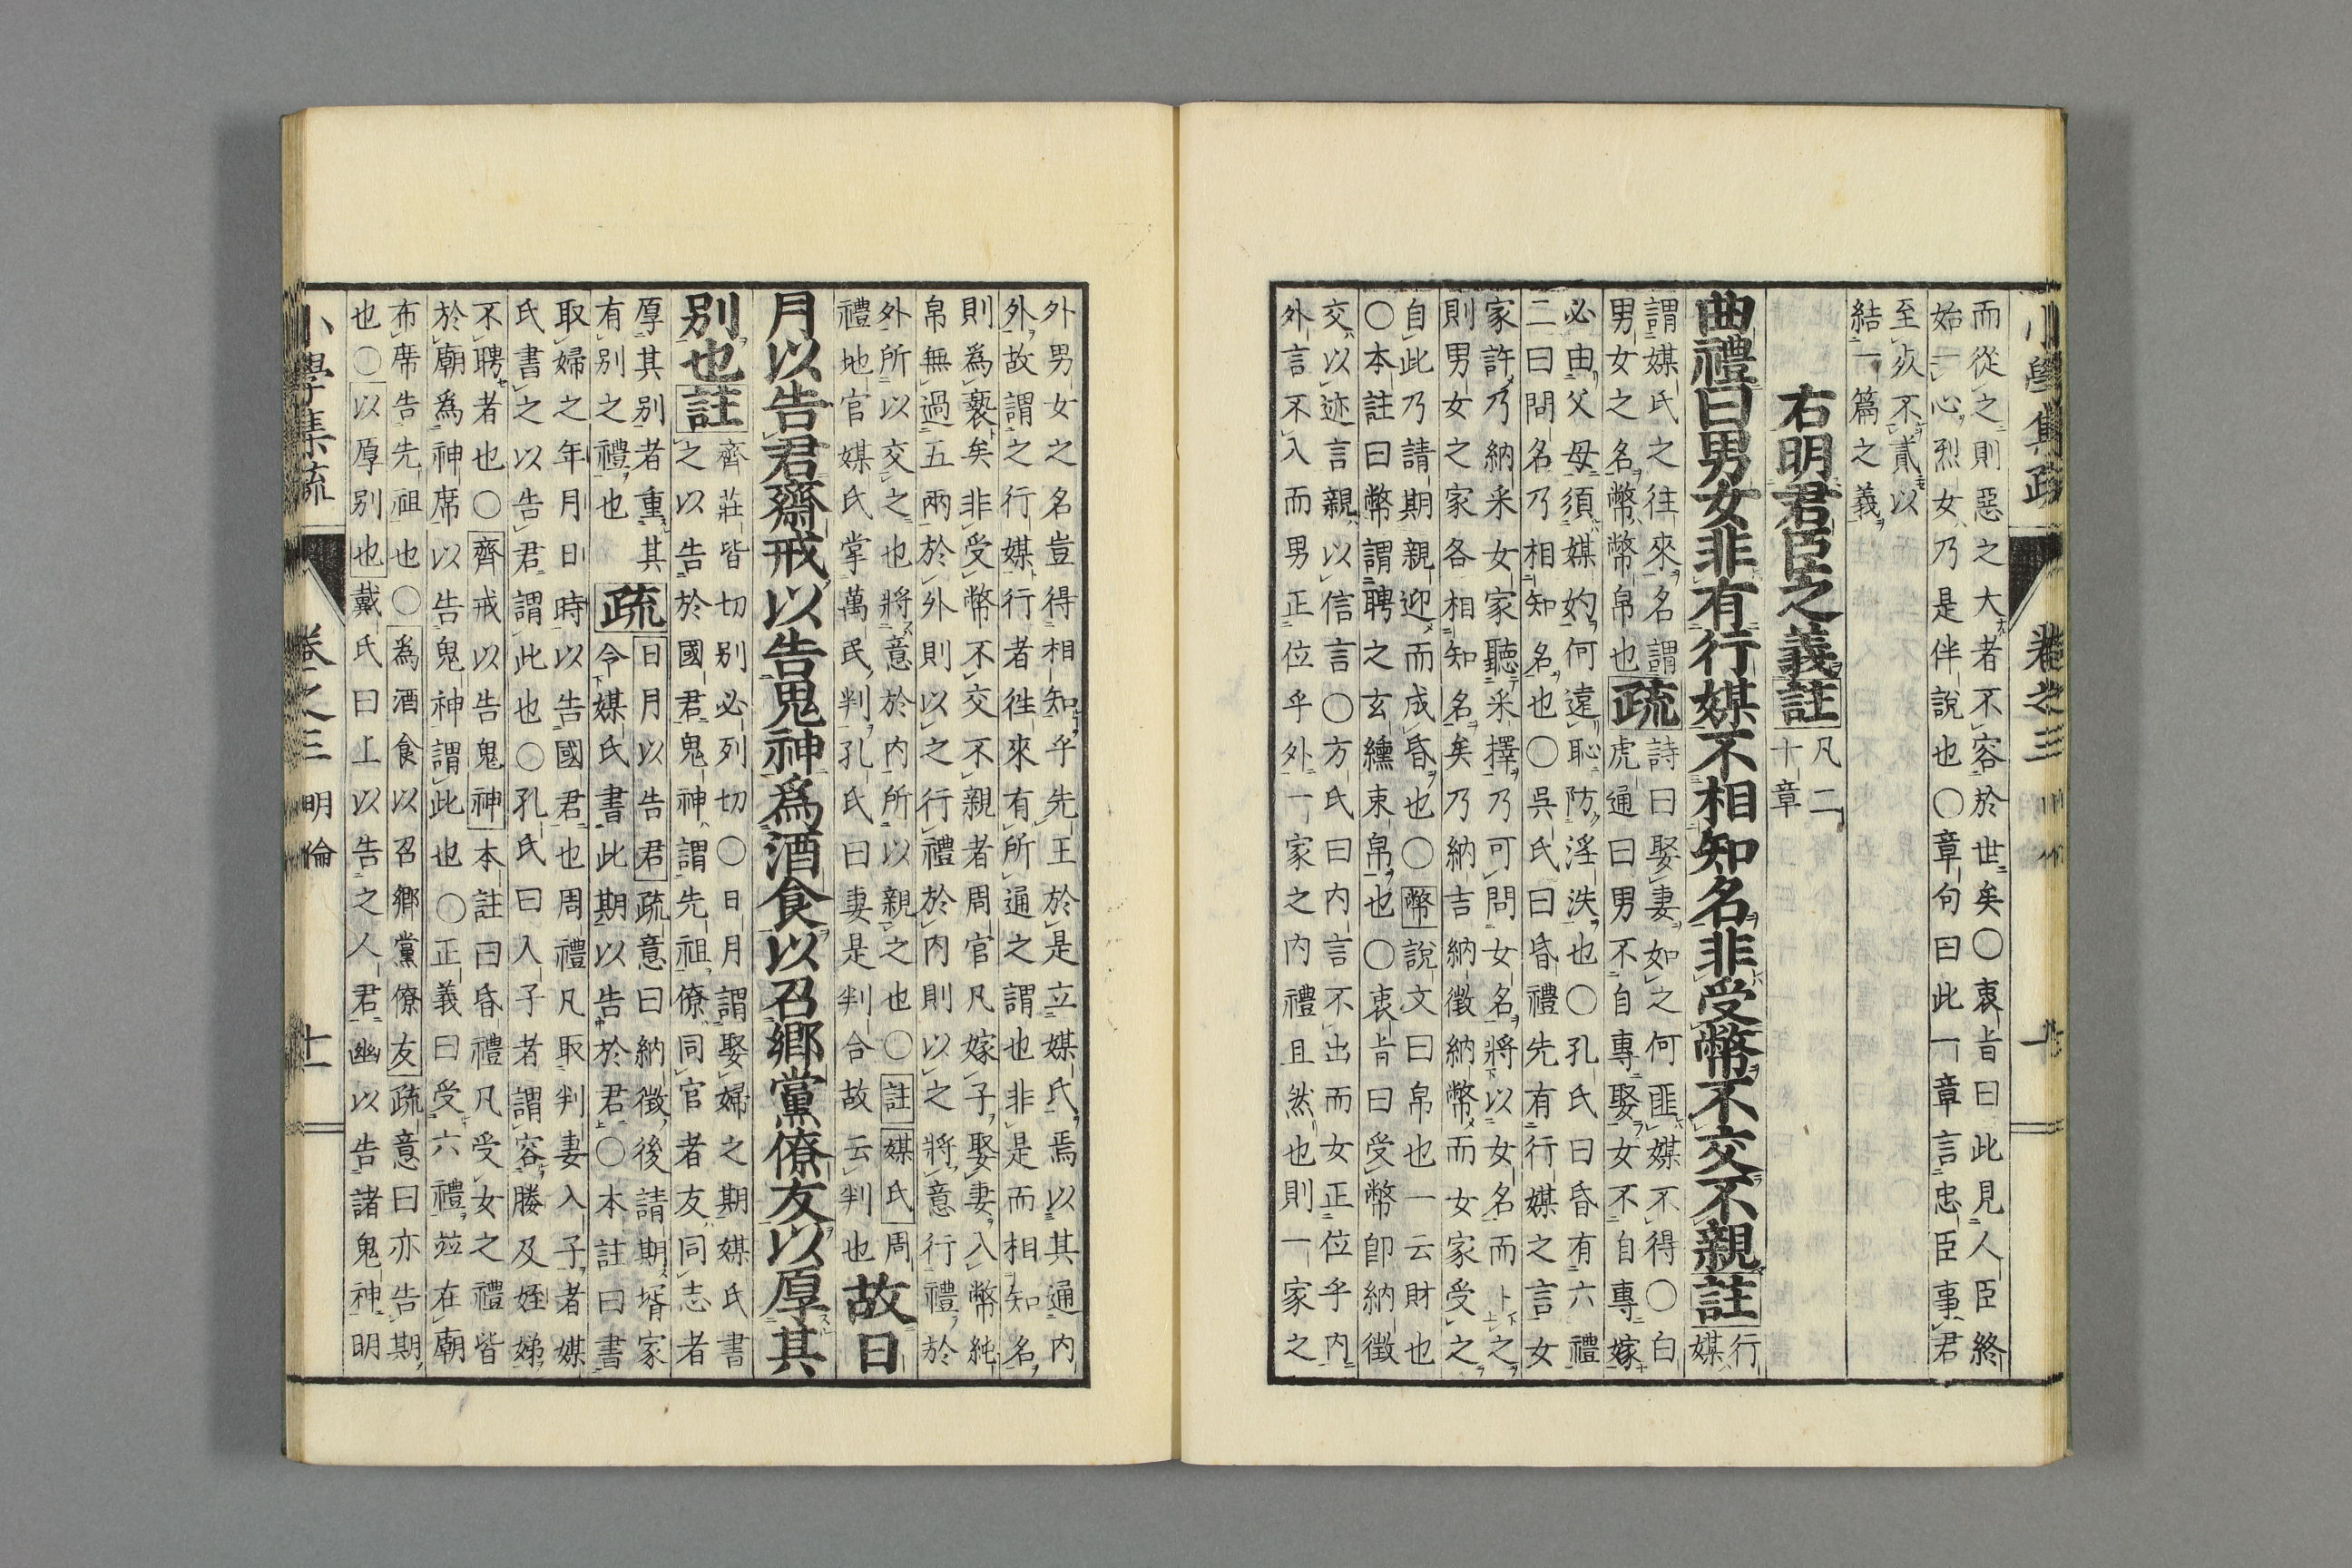 而從之則惡之大者不容於世矣〇衷旨曰此見人臣終
始一心烈女乃是伴說也〇章句曰此一章言忠臣事君
至死不貳以
結一篇之義
右明君臣之義註凡二
十章
曲禮曰男女非有行媒不相知名非受幣不交不親註行
媒
謂媒氏之往來名謂
男女之名幣幣帛也疏詩曰娶妻如之何匪媒不得〇白
虎通曰男不自專娶女不自專嫁
必由父母須媒妁何遠恥防淫泆也〇孔氏曰昏有六禮
二曰問名乃相知名也〇吳氏曰昏禮先有行媒之言女
家許乃納采女家聽采擇乃可問女名將以女名而卜之
則男女之家各相知名矣乃納吉納徵納幣而女家受之
自此乃請期親迎而成昏也〇幣說文曰帛也一云財也
〇本註曰幣謂聘之玄纁束帛也〇衷旨曰受幣卽納徵
交以迹言親以信言〇方氏曰内言不出而女正位乎内
外言不入而男正位乎外一家之内禮且然也則一家之
外男女之名豈得相知乎先王於是立媒氏焉以其通内
外故謂之行媒行者往來有所通之謂也非是而相知名
則爲褻矣非受幣不交不親者周官凡嫁子娶妻入幣純
帛無過五兩於外則以之行禮於内則以之將意行禮於
外所以交之也將意於内所以親之也〇註媒氏周
禮地官媒氏掌萬民判孔氏曰妻是判合故云判也故日
月以告君齋戒以告鬼神爲酒食以召鄉黨僚友以厚其
別也註齊莊皆切别必列切〇日月謂娶婦之期媒氏書
之以告於國君鬼神謂先祖僚同官者友同志者
厚其别者重其
有别之禮也疏日月以告君疏意曰納徵後請期壻家
令媒氏書此期以告於君〇本註曰書
取婦之年月日時以告國君也周禮凡取判妻入子者媒
氏書之以告君謂此也〇孔氏曰入子者謂容媵及姪娣
不聘者也〇齊戒以告鬼神本註曰昏禮凡受女之禮皆
於廟爲神席以告鬼神謂此也〇正義曰受六禮竝在廟
布席告先祖也〇爲酒食以召鄉黨僚友疏意曰亦告期
也〇以厚别也戴氏曰上以告之人君幽以告諸鬼神明
小學集疏　卷之三　明倫　十一